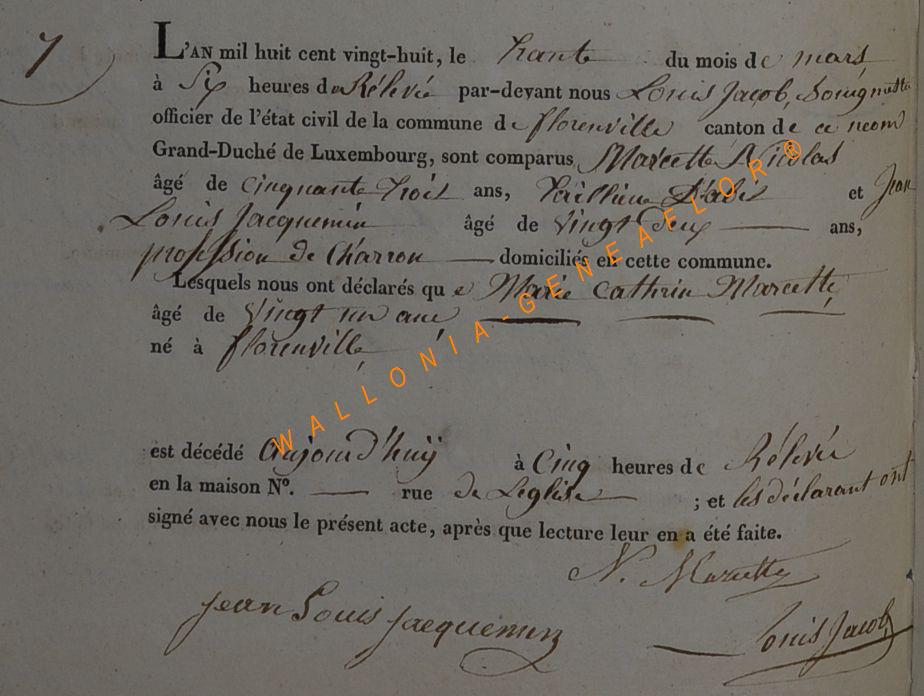 7
L'AN mil huit cent vingt-huit, le trante du mois de mars
à Six heures de Rélevée par-devant nous Louis Jacob,
officier de l'état civil de la commune de florenville canton de ce nom
Grand-Duché de Luxembourg, sont comparus Marcette Nicolas
âgé de cinquante trois ans, Taillieur D'abit et Jean
Louis Jacquemin âgé de Vingt deux ans,
profession de Charron domiciliés en cette commune.
Lesquels nous ont déclarés que Marie Cathrin Marcette
âgé de Vingt un ans
né à florenville
est décédé aujourd'huÿ à Cinq heures de Rélevée
en la maison N°. rue de Leglise ; et les déclarant ont
signé avec nous le présent acte, après que lecture leur en a été faite.
N. Marcette
Jean Louis Jacquemin
Louis Jacob
WALLONIA-GENEAFLOR®